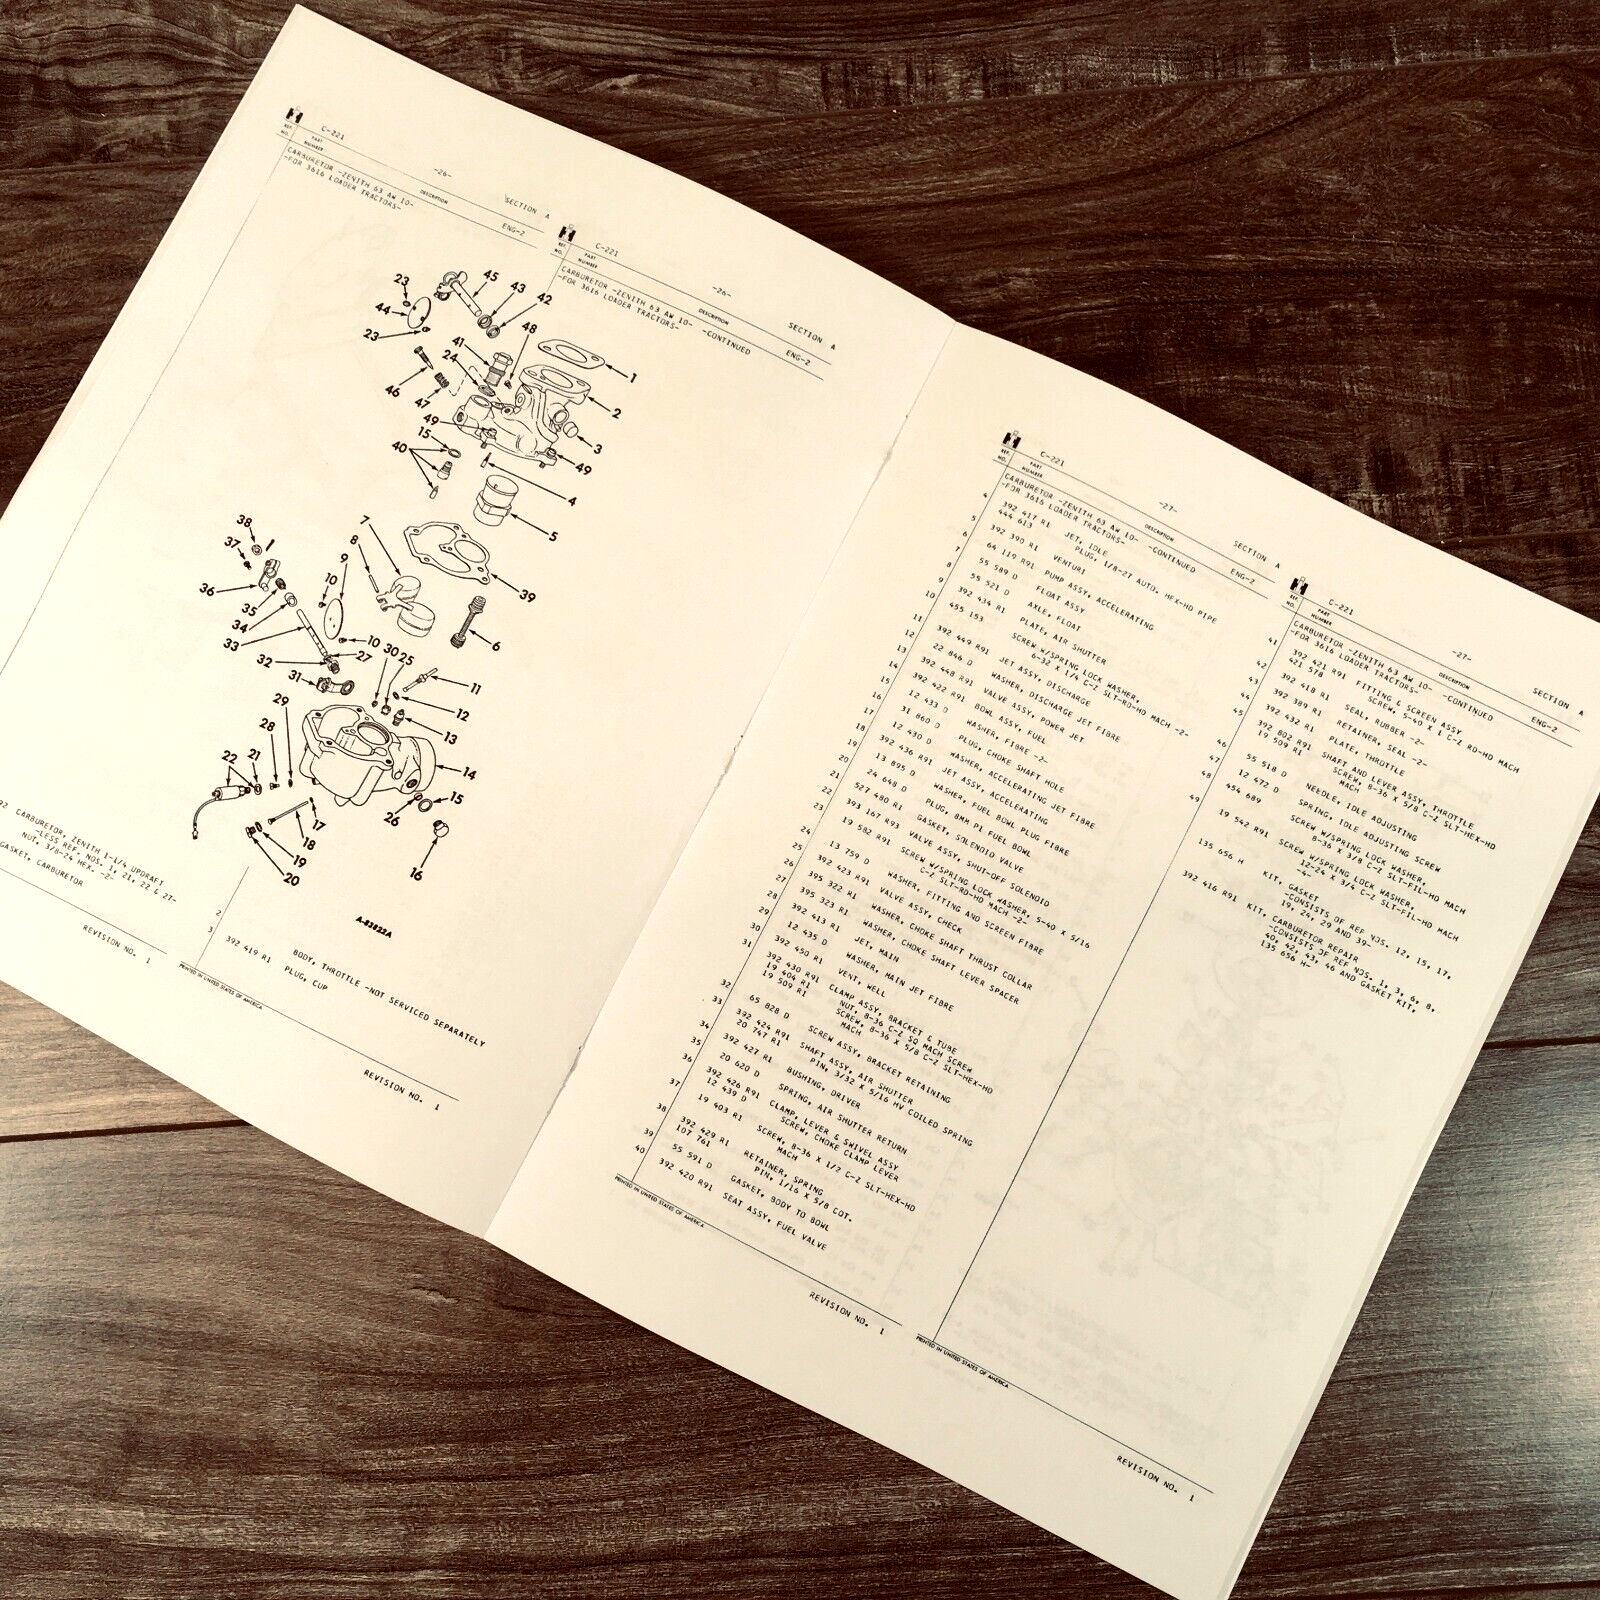 C-221
-26-
SECTION A
REF. NO.
PART NUMBER
DESCRIPTION
ENG-2
CARBURETOR -ZENITH 63 AW 10-
-FOR 3616 LOADER TRACTORS-
23
44
23
45
43
42
48
41
24
46
47
49
15
40
1
2
3
49
4
5
7
8
9
10
38
37
36
35
34
33
32
31
10
27
30
25
39
6
11
12
13
29
28
22
21
14
15
26
17
18
19
20
16
A-83823A
CARBURETOR, ZENITH 1-1/4 UPDRAFT
-LESS REF. NOS. 1, 21, 22 & 27-
NUT, 3/8-24 HEX. -2-
GASKET, CARBURETOR
REVISION NO. 1
C-221
-26-
SECTION A
REF. NO.
PART NUMBER
DESCRIPTION
ENG-2
CARBURETOR -ZENITH 63 AW 10- -CONTINUED
-FOR 3616 LOADER TRACTORS-
2 BODY, THROTTLE -NOT SERVICED SEPARATELY
3 392 419 R1 PLUG, CUP
PRINTED IN UNITED STATES OF AMERICA
REVISION NO. 1
C-221
-27-
SECTION A
REF. NO.
PART NUMBER
DESCRIPTION
ENG-2
CARBURETOR -ZENITH 63 AW 10- -CONTINUED
-FOR 3616 LOADER TRACTORS-
4 392 417 R1 JET, IDLE
444 613 PLUG, 1/8-27 AUTO. HEX-HD PIPE
5 392 390 R1 VENTURI
6 64 119 R91 PUMP ASSY, ACCELERATING
7 55 589 D FLOAT ASSY
8 55 521 D AXLE, FLOAT
9 392 434 R1 PLATE, AIR SHUTTER
10 455 153 SCREW W/SPRING LOCK WASHER,
6-32 X 1/4 C-Z SLT-RD-HD MACH -2-
11 392 449 R91 JET ASSY, DISCHARGE
12 22 846 D WASHER, DISCHARGE JET FIBRE
13 392 448 R91 VALVE ASSY, POWER JET
14 392 422 R91 BOWL ASSY, FUEL
15 12 433 D WASHER, FIBRE -2-
16 31 860 D PLUG, CHOKE SHAFT HOLE
17 12 430 D WASHER, ACCELERATING JET FIBRE
18 392 436 R91 JET ASSY, ACCELERATING
19 13 895 D WASHER, FUEL BOWL PLUG FIBRE
20 24 648 D PLUG, 8MM P1 FUEL BOWL
21 527 480 R1 GASKET, SOLENOID VALVE
22 393 167 R93 VALVE ASSY, SHUT-OFF SOLENOID
23 19 582 R91 SCREW W/SPRING LOCK WASHER, 5-40 X 5/16
C-Z SLT-RD-HD MACH -2-
24 13 759 D WASHER, FITTING AND SCREEN FIBRE
25 392 423 R91 VALVE ASSY, CHECK
26 395 322 R1 WASHER, CHOKE SHAFT THRUST COLLAR
27 395 323 R1 WASHER, CHOKE SHAFT LEVER SPACER
28 392 413 R1 JET, MAIN
29 12 435 D WASHER, MAIN JET FIBRE
30 392 450 R1 VENT, WELL
31 392 430 R91 CLAMP ASSY, BRACKET & TUBE
19 404 R1 NUT, 8-36 C-Z SQ MACH SCREW
19 509 R1 SCREW, 8-36 X 5/8 C-Z SLT-HEX-HD
MACH
32 65 828 D SCREW ASSY, BRACKET RETAINING
33 392 424 R91 SHAFT ASSY, AIR SHUTTER
20 747 R1 PIN, 3/32 X 5/16 HV COILED SPRING
34 392 427 R1 BUSHING, DRIVER
35 20 620 D SPRING, AIR SHUTTER RETURN
36 392 426 R91 CLAMP, LEVER & SWIVEL ASSY
12 439 D SCREW, CHOKE CLAMP LEVER
37 19 403 R1 SCREW, 8-36 X 1/2 C-Z SLT-HEX-HD
MACH
38 392 429 R1 RETAINER, SPRING
107 761 PIN, 1/16 X 5/8 COT.
39 55 591 D GASKET, BODY TO BOWL
40 392 420 R91 SEAT ASSY, FUEL VALVE
PRINTED IN UNITED STATES OF AMERICA
REVISION NO. 1
C-221
-27-
SECTION A
REF. NO.
PART NUMBER
DESCRIPTION
ENG-2
CARBURETOR -ZENITH 63 AW 10- -CONTINUED
-FOR 3616 LOADER TRACTORS-
41 392 421 R91 FITTING & SCREEN ASSY
421 578 SCREW, 5-40 X 1 C-Z RD-HD MACH
42 392 418 R1 SEAL, RUBBER -2-
43 392 389 R1 RETAINER, SEAL -2-
44 392 432 R1 PLATE, THROTTLE
45 392 802 R91 SHAFT AND LEVER ASSY, THROTTLE
19 509 R1 SCREW, 8-36 X 5/8 C-Z SLT-HEX-HD
MACH
46 55 518 D NEEDLE, IDLE ADJUSTING
47 12 472 D SPRING, IDLE ADJUSTING SCREW
48 454 689 SCREW W/SPRING LOCK WASHER,
8-36 X 3/8 C-Z SLT-FIL-HD MACH
49 19 542 R91 SCREW W/SPRING LOCK WASHER,
12-24 X 3/4 C-Z SLT-FIL-HD MACH
-4-
135 656 H KIT, GASKET
-CONSISTS OF REF NOS. 12, 15, 17,
19, 24, 29 AND 39-
392 416 R91 KIT, CARBURETOR REPAIR
-CONSISTS OF REF NOS. 1, 3, 6, 8,
40, 42, 43, 46 AND GASKET KIT,
135 656 H-
PRINTED IN UNITED STATES OF AMERICA
REVISION NO. 1